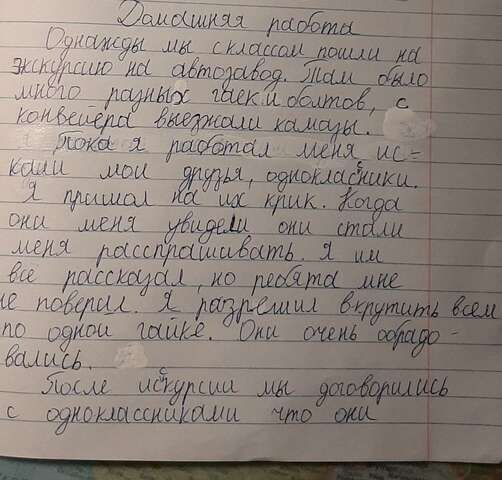 Домашняя работа
Однажды мы с классом пошли на
экскурсию на автозавод. Там было
много разных гаек и болтов, с
конвейера выезжали камазы.
Пока я работал меня ис-
кали мои друзья, одноклассники.
Я пришол на их крик. Когда
они меня увидели они стали
меня расспрашивать. Я им
все рассказал, но ребята мне
не поверил. Я разрешил вкрутить всем
по одной гайке. Они очень обрадо-
вались.
После искурсии мы договорились
с одноклассниками что они